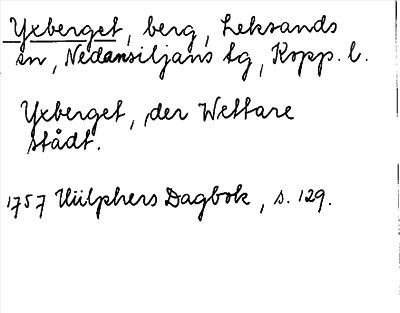 Yxberget, berg, Leksands
sn, Nedansiljans tg, Kopp. l.
Yxberget, der Wettare
stådt.
1757 Hülphers Dagbok, s. 129.